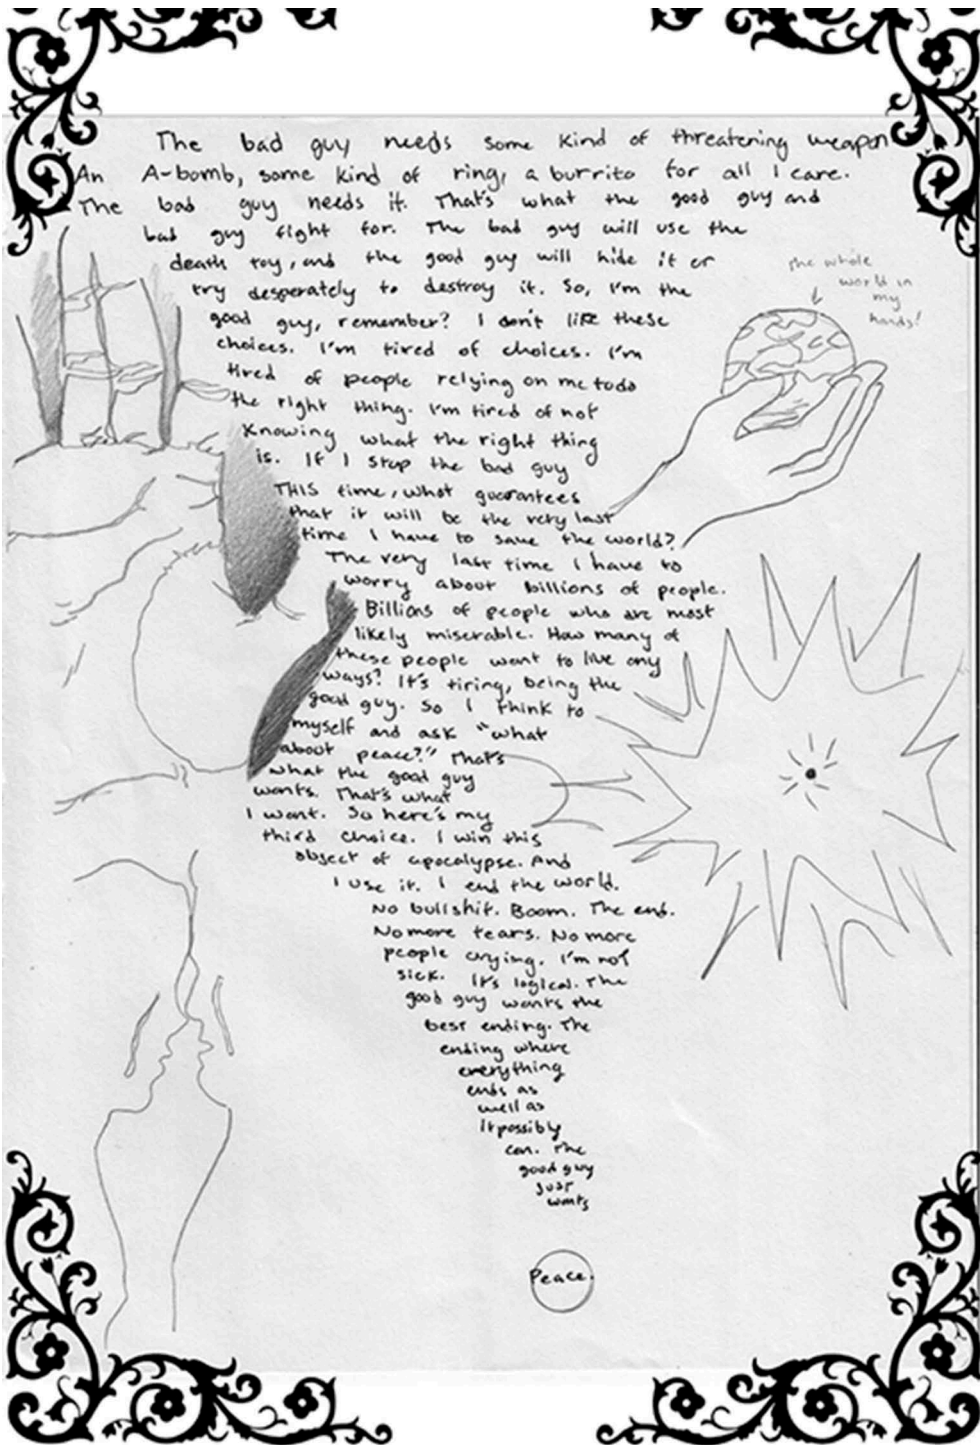 The bad guy needs some kind of threatening weapon
An A-bomb, some kind of ring, a burrito for all I care.
The bad guy needs it. That's what the good guy and
bad guy fight for. The bad guy will use the
death toy, and the good guy will hide it or
try desperately to destroy it. So, I'm the
good guy, remember? I don't like these
choices. I'm tired of choices. I'm
tired of people relying on me to do
the right thing. I'm tired of not
knowing what the right thing
is. If I stop the bad guy
THIS time, what guarantees
that it will be the very last
time I have to save the world?
The very last time I have to
worry about billions of people.
Billions of people who are most
likely miserable. How many of
these people want to live any
ways? It's tiring, being the
good guy. So I think to
myself and ask "what
about peace?" That's
what the good guy
wants. That's what
I want. So here's my
third choice. I win this
object of apocalypse. And
I use it. I end the world.
No bullshit. Boom. The end.
No more tears. No more
people crying. I'm not
sick. It's logical. The
good guy wants the
best ending. The
ending where
everything
ends as
well as
it possibly
can. The
good guy
just
wants
Peace.
the whole
world in
my
hands!